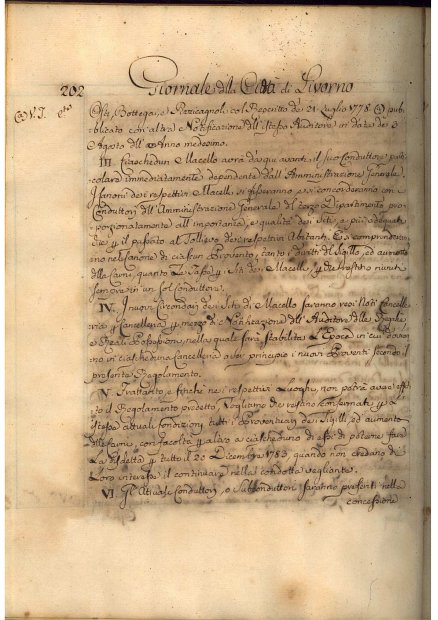 202 Giornale della Città di Livorno
Osti, Bottegai, e Pizzicagnoli col Rescritto de 21 Luglio 1778 pub-
blicato con altra Notificazione dell' istesso Auditore in data dei 3
Agosto dell' Anno medesimo.
III. Ciaschedun Macello avrà da qui avanti il suo Conduttore parti-
colare immediatamente dipendente dall' Amministrazione Generale.
I canoni dei respettivi Macelli si fisseranno, e si concorderanno con i
Conduttori dell' Amministrazione Generale del terzo Dipartimento pro-
porzionatamente all' importanza, e qualità dei Siti, e più adequati
al sollievo dei respettivi Abitanti. E si comprenderan-
no nel canone di ciascun Provento, tanto i diritti del Sigillo, ed aumento
della Carne, quanto le Tasse dei Macelli, riuniti
sempre in un sol Conduttore.
IV. I nuovi Circondari dei Siti di Macello saranno resi noti
Cancelleria di Notificazione dell' Auditore delle Regalie
e Reali Possessioni, nella quale sarà stabilita l' Epoca in cui dovran-
no in ciascheduna Cancelleria aver principio i nuovi Proventi secondo il
presente Regolamento.
V. Frattanto, e finchè nei respettivi Luoghi non potrà avere effet-
to il Regolamento predetto, Vogliamo che restino confermati
stesse attuali condizioni tutti i Proventieri dei Sigilli, ed aumento
delle Carni, con facoltà altresì a ciascheduno di essi di poterne fare
la disdetta tutto il 20 Dicembre 1783, quando non credano di
loro interesse il continuare nella condotta vegliante.
VI. Gli Attuali Conduttori, o Subconduttori saranno preferiti nella
concessione